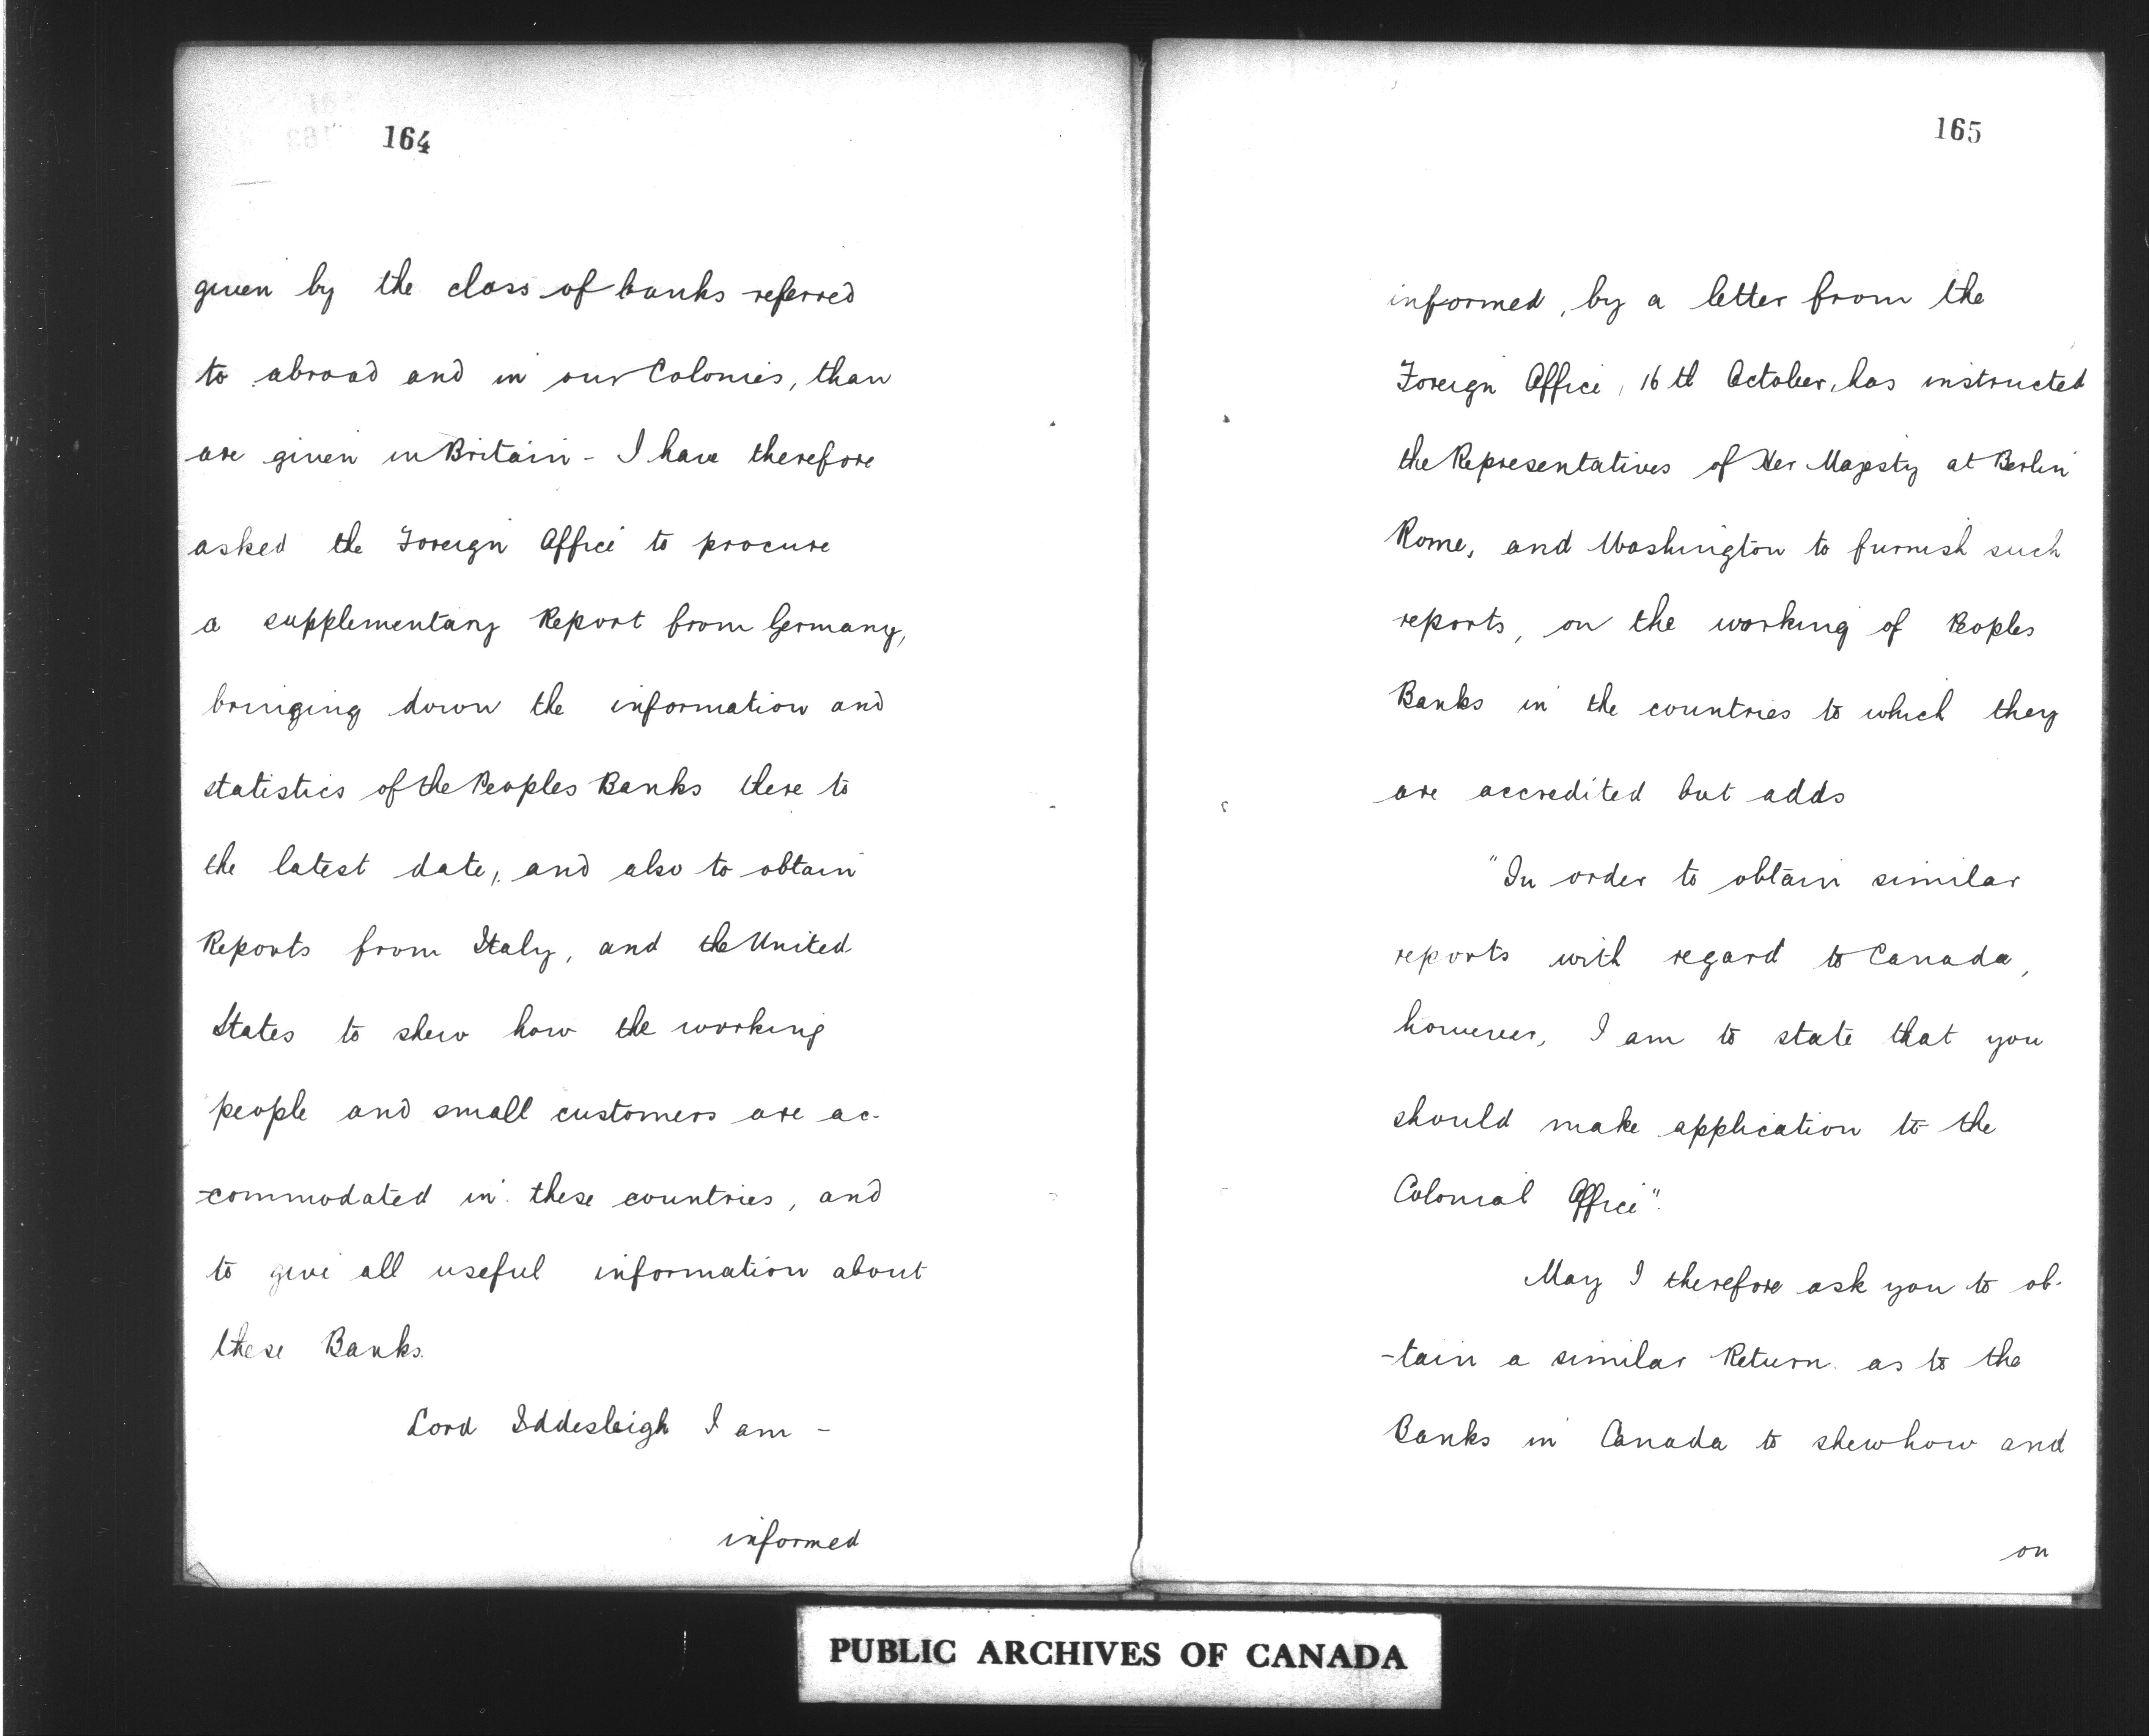 164
given by the class of banks referred
to abroad and in our Colonies, than
are given in Britain - I have therefore
asked the Foreign Office to procure
a supplementary Report from Germany,
bringing down the information and
statistics of the Peoples Banks there to
the latest date, and also to obtain
Reports from Italy, and the United
States to shew how the working
people and small customers are ac-
-commodated in these countries, and
to give all useful information about
these Banks.
Lord Iddesleigh I am -
informed
165
informed, by a letter from the
Foreign Office, 16th October, has instructed
the Representatives of Her Majesty at Berlin
Rome, and Washington to furnish such
reports, on the working of Peoples
Banks in the countries to which they
are accredited but adds
"In order to obtain similar
reports with regard to Canada,
however, I am to state that you
should make application to the
Colonial Office".
May I therefore ask you to ob-
-tain a similar Return as to the
Banks in Canada to shew how and
on
PUBLIC ARCHIVES OF CANADA